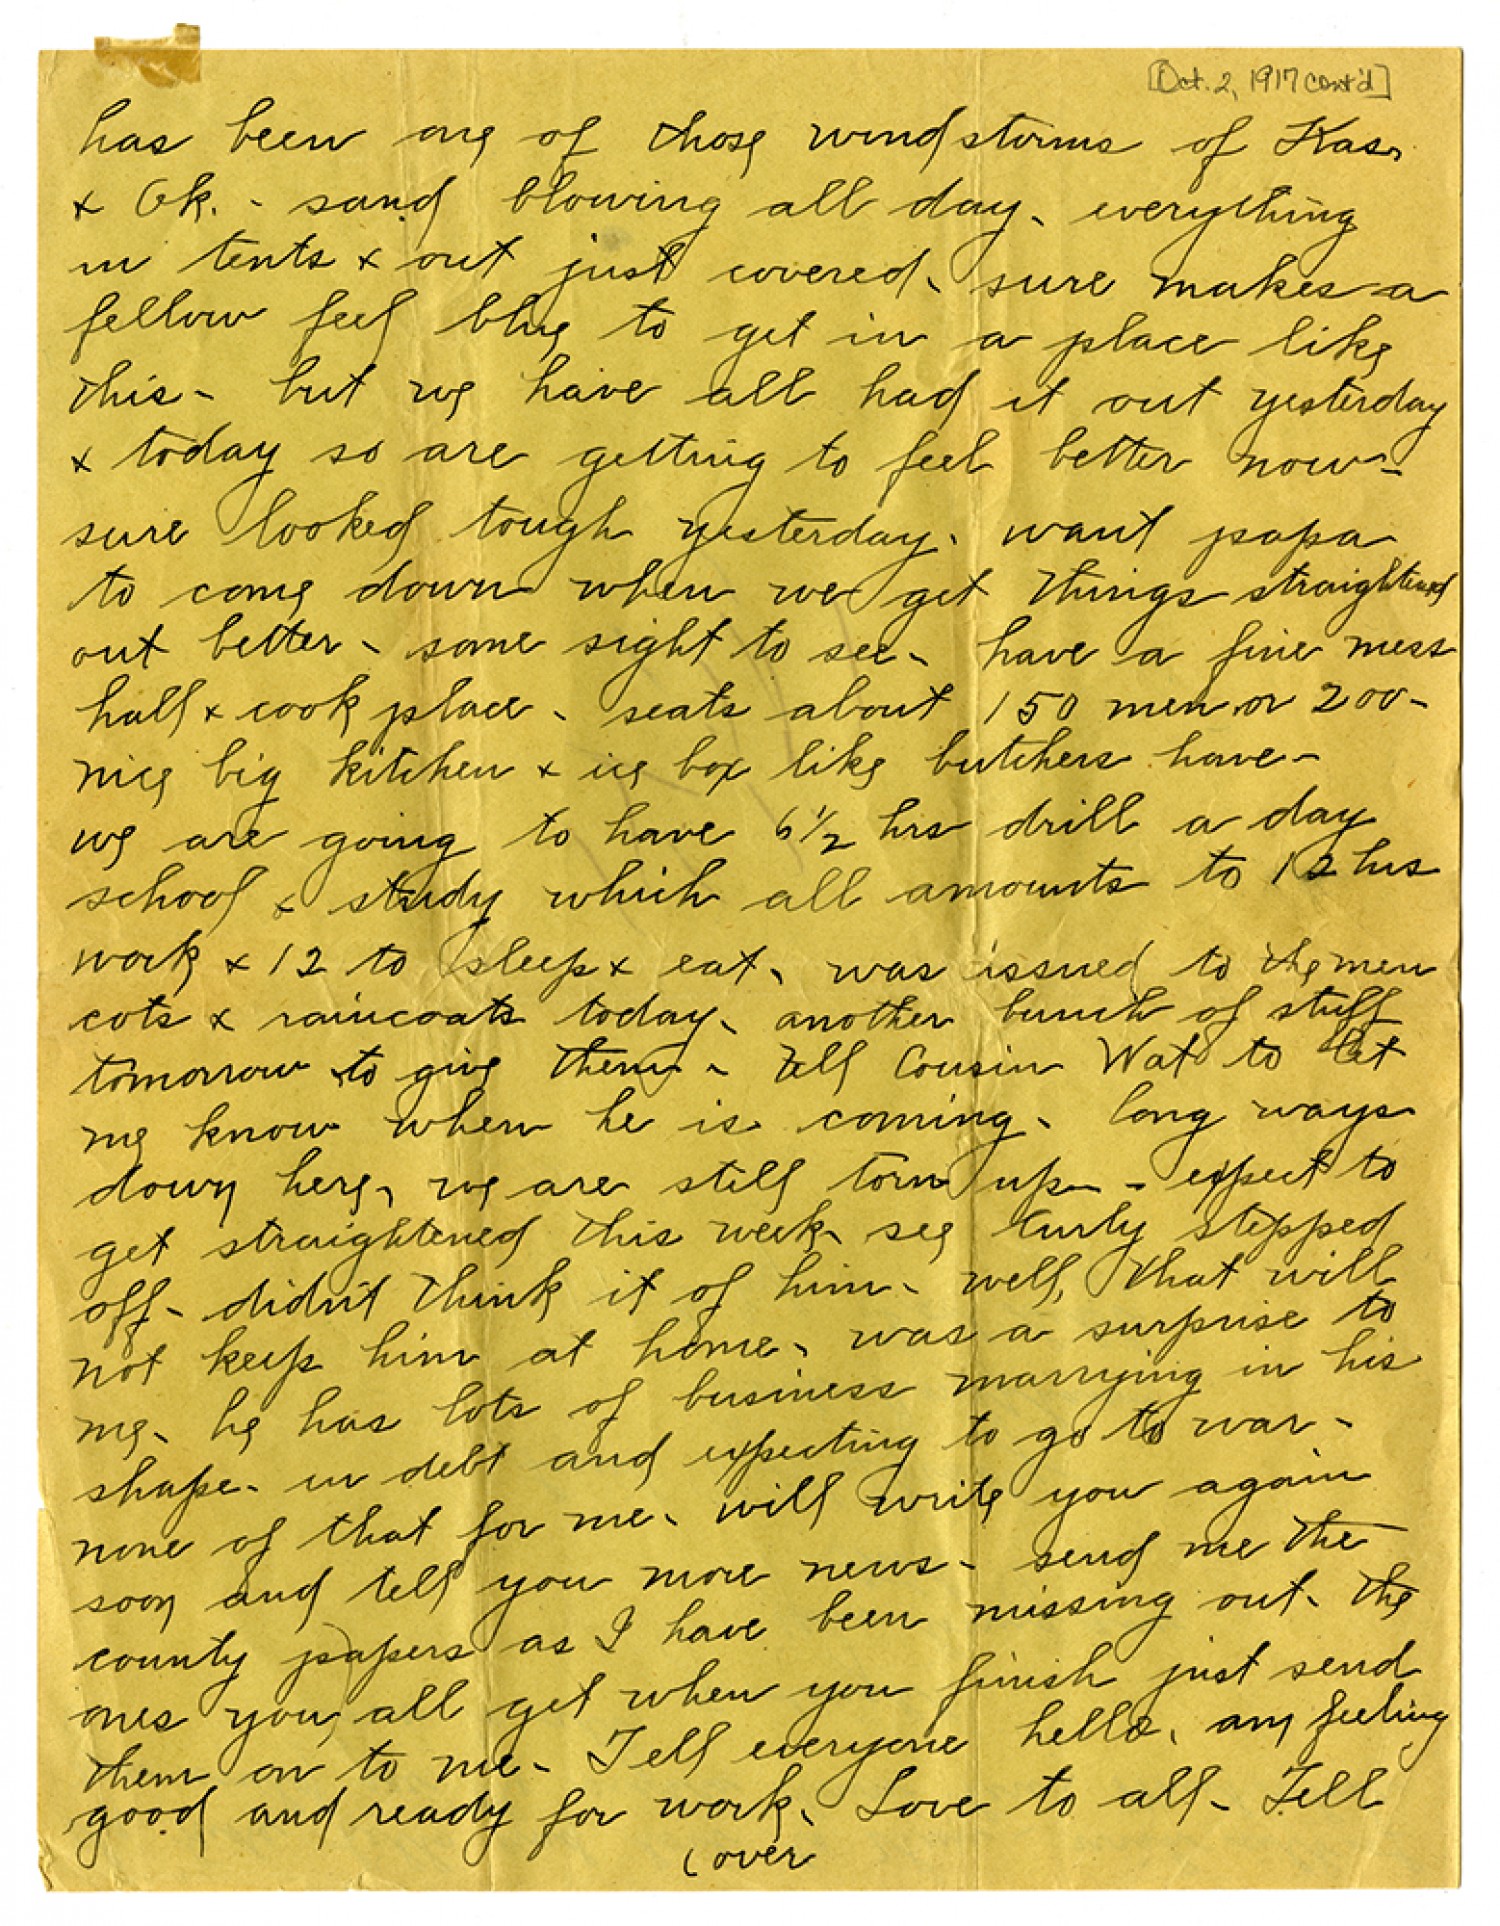 [Oct. 2, 1917 cont'd]
has been one of those windstorms of Kas.
& Ok. - sand blowing all day - everything
in tents & out just covered - sure makes a
fellow feel blue to get in a place like
this - but we have all had it out yesterday
& today so are getting to feel better now -
sure looked tough yesterday. want papa
to come down when we get things straightened
out better - some sight to see - have a fine mess
hall & cook place - seats about 150 men or 200 -
nice big kitchen & ice box like butchers have -
we are going to have 6 1/2 hrs drill a day
school & study which all amounts to 12 hrs
work & 12 to sleep & eat - was issued to the men
cots & raincoats today - another bunch of stuff
tomorrow to give them - Tell Cousin Wat to let
me know when he is coming - long ways
down here - we are still torn up - expect to
get straightened this week - see Curly stepped
off - didn't think it of him - well, that will
not keep him at home - was a surprise to
me - he has lots of business marrying in his
shape - in debt and expecting to go to war -
none of that for me - will write you again
soon and tell you more news - send me the
county papers as I have been missing out - the
ones you all get when you finish just send
them on to me - Tell everyone hello - am feeling
good and ready for work - Love to all - Tell
(over